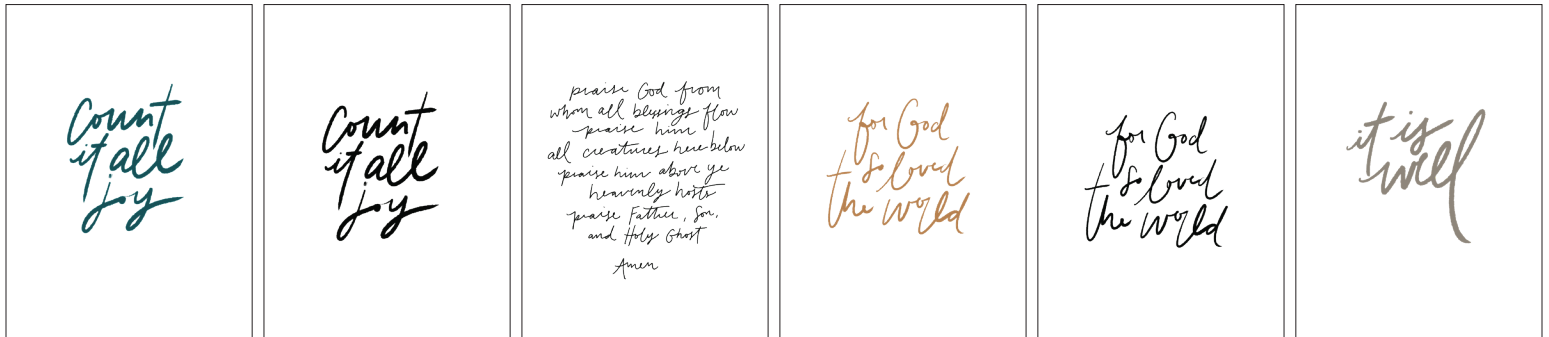 Count
it all
joy
Count
it all
joy
praise God from
whom all blessings flow
praise him
all creatures here below
praise him above ye
heavenly hosts
praise Father, Son,
and Holy Ghost
Amen
for God
so loved
the world
for God
so loved
the world
it is
well